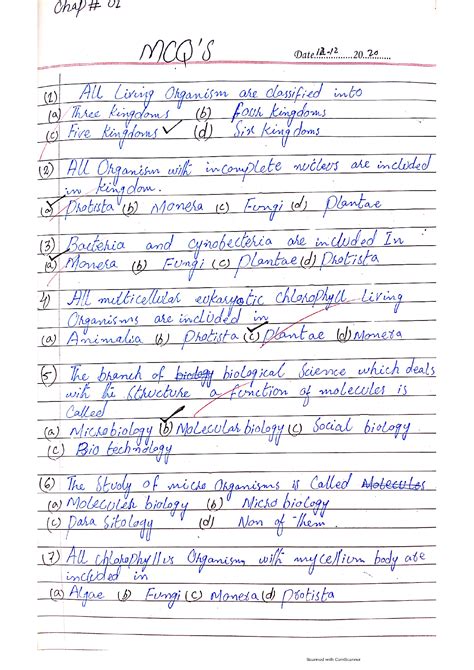 Chap # 01
MCQ'S
Date 12-12 2020
(1) All Living Organism are classified into
(a) Three kingdoms (b) four kingdoms
(c) Five kingdoms ✓ (d) Six kingdoms
(2) All Organism with incomplete nucleus are included
in kingdom.
(a) Protista (b) Monera (c) Fungi (d) Plantae
(3) Bacteria and cynobecteria are included In
(a) Monera (b) Fungi (c) Plantae (d) Protista
4) All multicellular eukaryotic chlorophyll living
Organisms are included in
(a) Animalia (b) Protista (c) Plantae (d) Monera
(5) The branch of biology biological Science which deals
with the structure a function of molecules is
Called
(a) Microbiology (b) Molecular biology (c) Social biology
(c) Bio technology
(6) The Study of micro Organisms is Called
(a) Moleculer biology (b) Micro biology
(c) Para Sitology (d) Non of them.
(7) All chlorophyllus Organism with mycellium body are
included in
(a) Algae (b) Fungi (c) Monera (d) Protista
Scanned with CamScanner